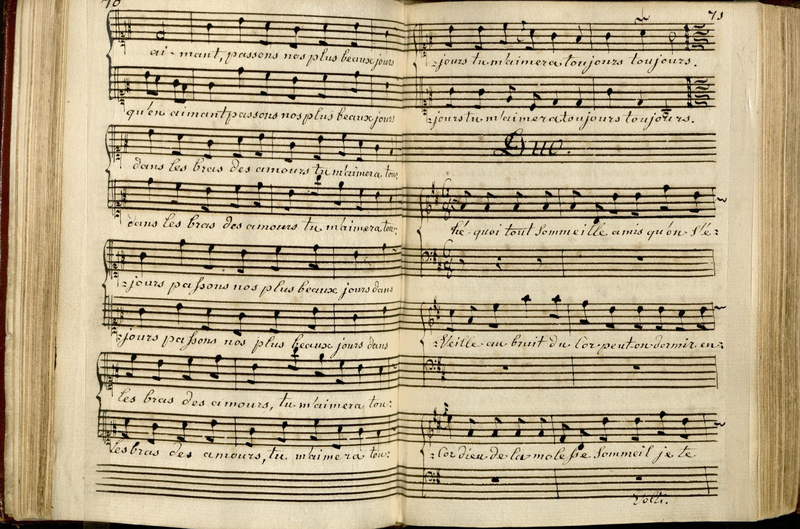 70
ai-mant, passons nos plus beaux jours
qu'en aimant passons nos plus beaux jours
dans les bras des amours tu m'aimera tou:
dans les bras des amours tu m'aimera tou:
:jours passons nos plus beaux jours dans
:jours passons nos plus beaux jours dans
les bras des amours, tu m'aimera tou:
les bras des amours, tu m'aimera tou:
71
:jours tu m'aimera toujours toujours.
:jours tu m'aimera toujours toujours.
Duo.
hé-quoi tout sommeille amis qu'on s'é:
:Veille au bruit du Cor peut on dormir en:
:Cor dieu de la molesse Sommeil je te
Volti.